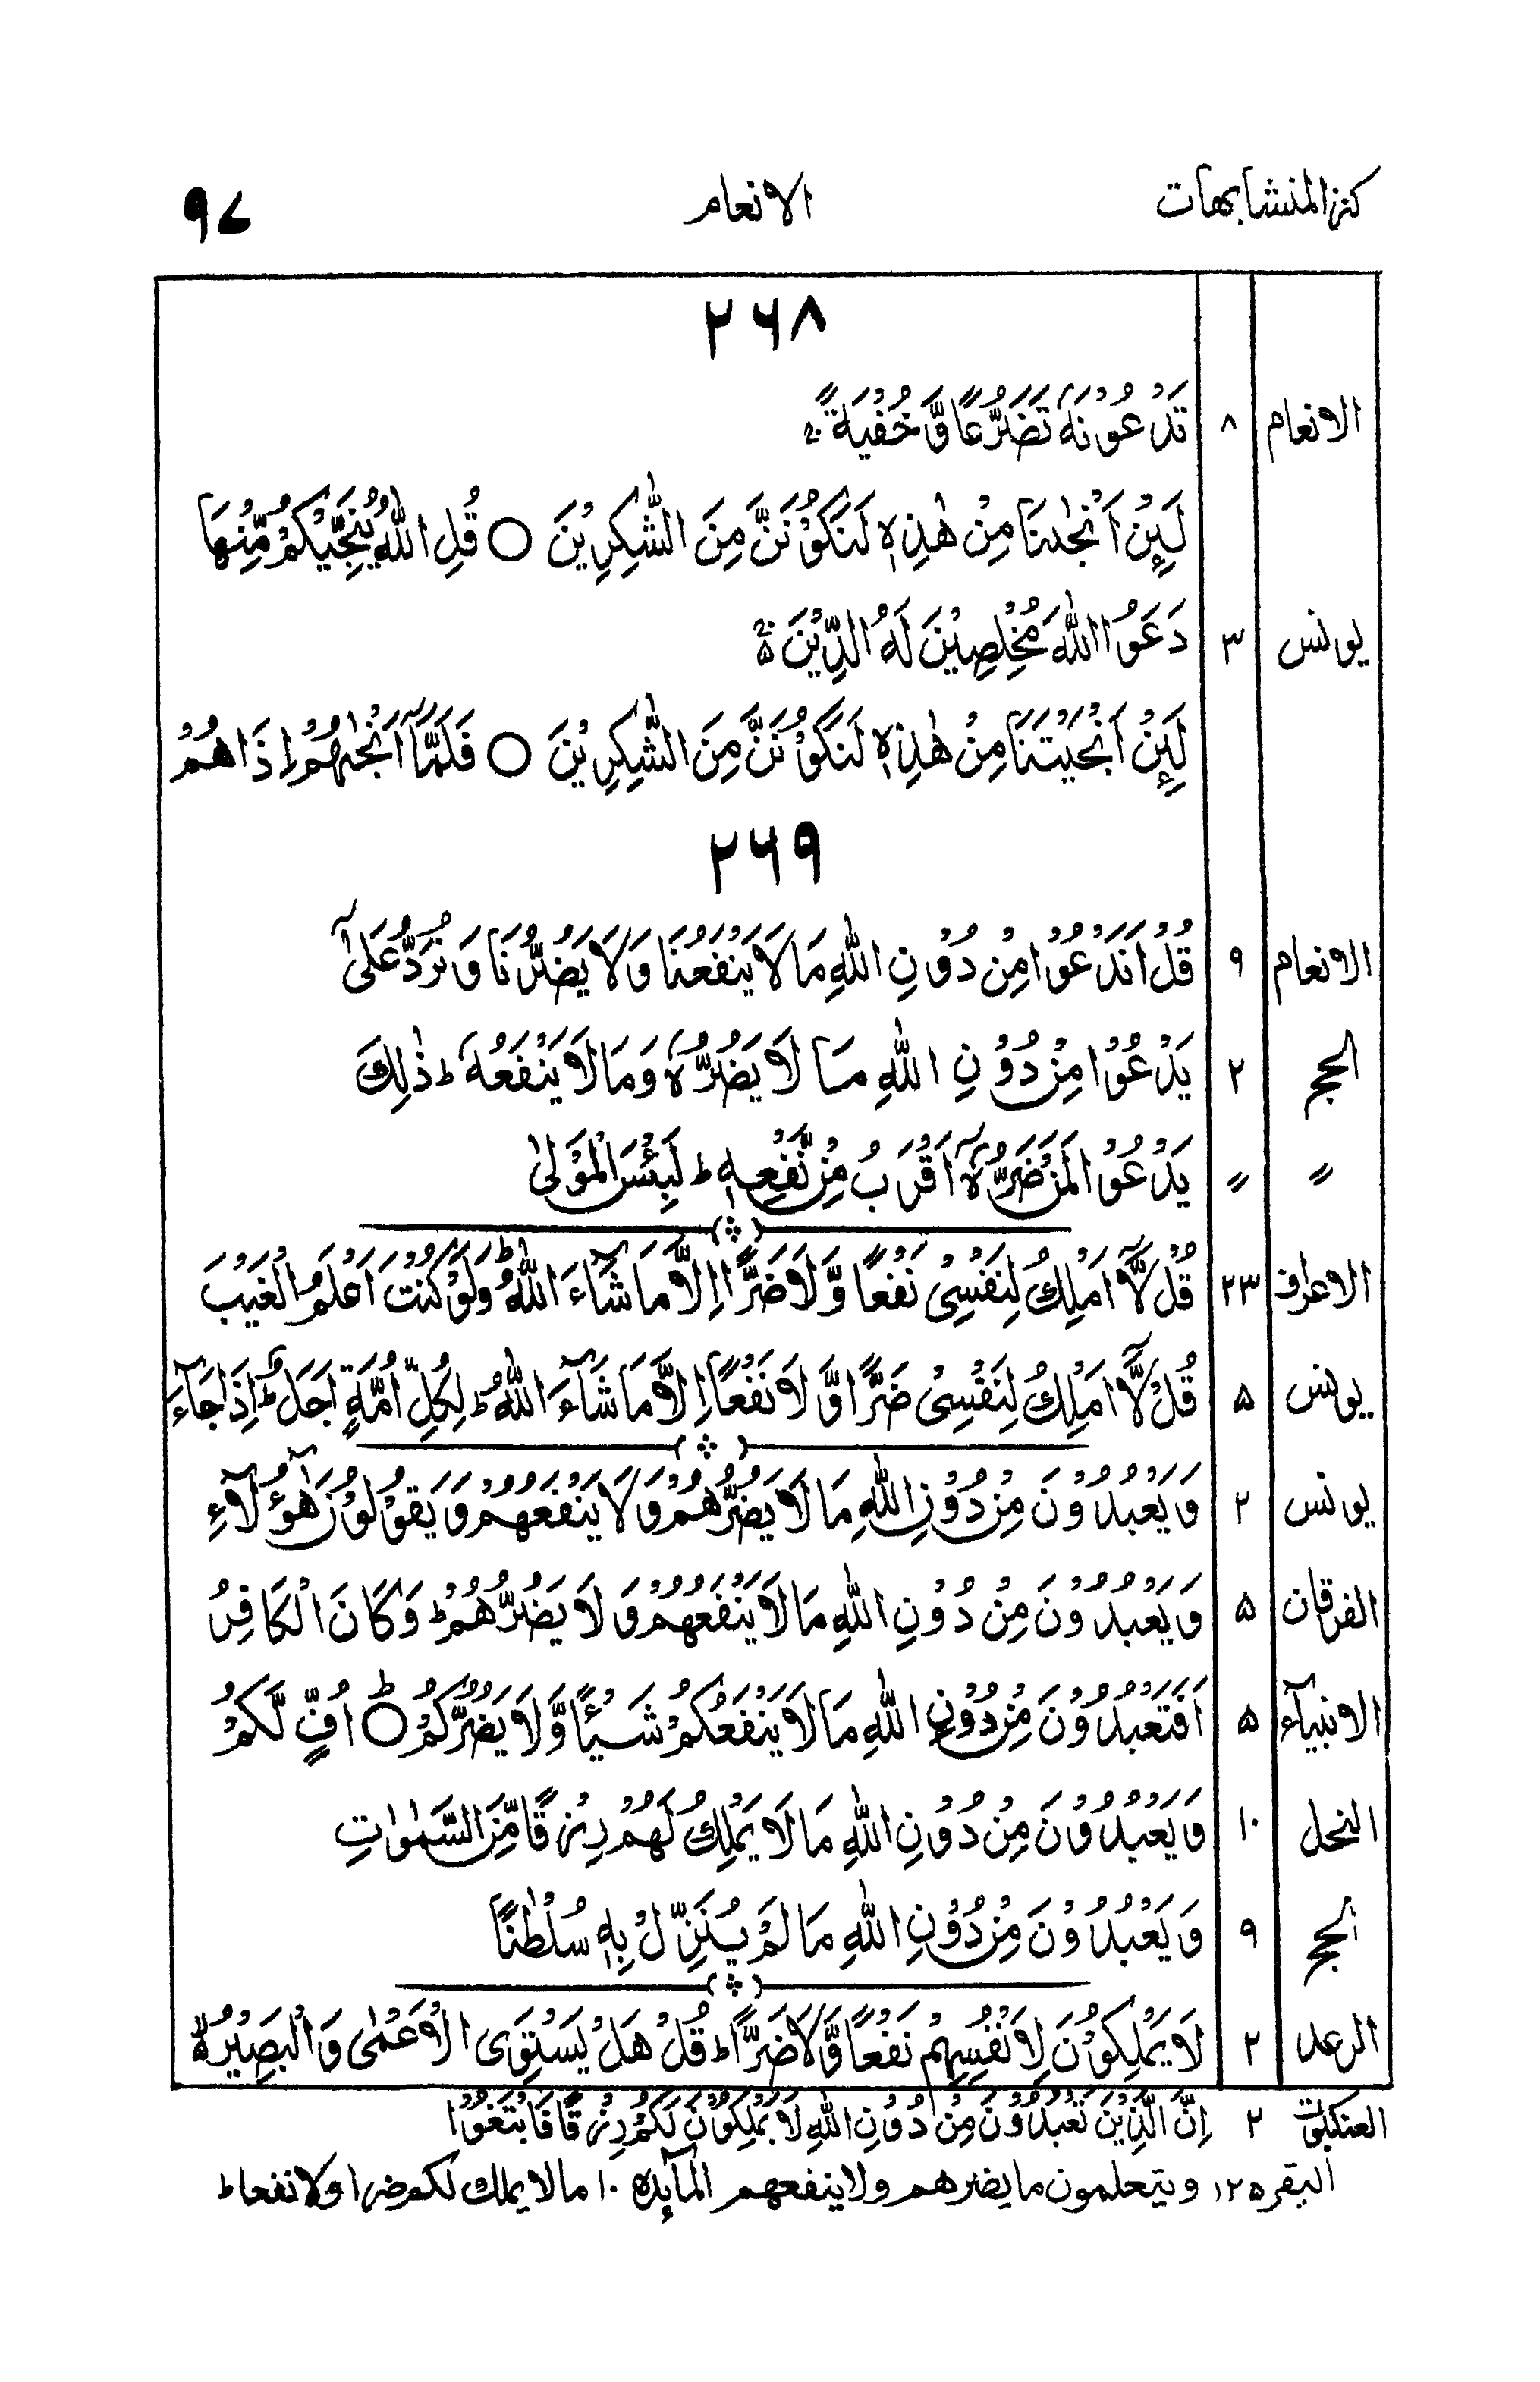 كنز المتشابہات الانعام ۹۷
۲۶۸
الانعام ۸ تَدْعُوْنَهٗ تَضَرُّعًا وَّخُفْيَةً ۚ
لَئِنْ اَنْجٰىنَا مِنْ هٰذِهٖ لَنَكُوْنَنَّ مِنَ الشّٰكِرِيْنَ ○ قُلِ اللّٰهُ يُنَجِّيْكُمْ مِّنْهَا
يونس ۳ دَعَوُا اللّٰهَ مُخْلِصِيْنَ لَهُ الدِّيْنَ ۚ۬
لَئِنْ اَنْجَيْتَنَا مِنْ هٰذِهٖ لَنَكُوْنَنَّ مِنَ الشّٰكِرِيْنَ ○ فَلَمَّاۤ اَنْجٰىهُمْ اِذَا هُمْ
۲۶۹
الانعام ۹ قُلْ اَنَدْعُوْا مِنْ دُوْنِ اللّٰهِ مَا لَا يَنْفَعُنَا وَلَا يَضُرُّنَا وَنُرَدُّ عَلٰۤى
الحج ۲ يَدْعُوْا مِنْ دُوْنِ اللّٰهِ مَا لَا يَضُرُّهٗ وَمَا لَا يَنْفَعُهٗ ؕ ذٰلِكَ
〃 〃 يَدْعُوْا لَمَنْ ضَرُّهٗۤ اَقْرَبُ مِنْ نَّفْعِهٖ ؕ لَبِئْسَ الْمَوْلٰى
الاعراف ۲۳ قُلْ لَّاۤ اَمْلِكُ لِنَفْسِيْ نَفْعًا وَّلَا ضَرًّا اِلَّا مَا شَآءَ اللّٰهُ ؕ وَلَوْ كُنْتُ اَعْلَمُ الْغَيْبَ
يونس ۵ قُلْ لَّاۤ اَمْلِكُ لِنَفْسِيْ ضَرًّا وَّلَا نَفْعًا اِلَّا مَا شَآءَ اللّٰهُ ؕ لِكُلِّ اُمَّةٍ اَجَلٌ ؕ اِذَا جَآءَ
يونس ۲ وَيَعْبُدُوْنَ مِنْ دُوْنِ اللّٰهِ مَا لَا يَضُرُّهُمْ وَلَا يَنْفَعُهُمْ وَيَقُوْلُوْنَ هٰۤؤُلَآءِ
الفرقان ۵ وَيَعْبُدُوْنَ مِنْ دُوْنِ اللّٰهِ مَا لَا يَنْفَعُهُمْ وَلَا يَضُرُّهُمْ ؕ وَكَانَ الْكَافِرُ
الانبيآء ۵ اَفَتَعْبُدُوْنَ مِنْ دُوْنِ اللّٰهِ مَا لَا يَنْفَعُكُمْ شَيْـًٔا وَّلَا يَضُرُّكُمْ ؕ○ اُفٍّ لَّكُمْ
النحل ۱۰ وَيَعْبُدُوْنَ مِنْ دُوْنِ اللّٰهِ مَا لَا يَمْلِكُ لَهُمْ رِزْقًا مِّنَ السَّمٰوٰتِ
الحج ۹ وَيَعْبُدُوْنَ مِنْ دُوْنِ اللّٰهِ مَا لَمْ يُنَزِّلْ بِهٖ سُلْطٰنًا
الرعد ۲ لَا يَمْلِكُوْنَ لِاَنْفُسِهِمْ نَفْعًا وَّلَا ضَرًّا ؕ قُلْ هَلْ يَسْتَوِى الْاَعْمٰى وَالْبَصِيْرُ ۙ۬
العنكبوت ۲ اِنَّ الَّذِيْنَ تَعْبُدُوْنَ مِنْ دُوْنِ اللّٰهِ لَا يَمْلِكُوْنَ لَكُمْ رِزْقًا فَابْتَغُوْا
البقره ۱۲۵ ويتعلمون ما يضرهم ولا ينفعهم المآئده ۱۰ ما لا يملك لكم ضرا ولا نفعا ط